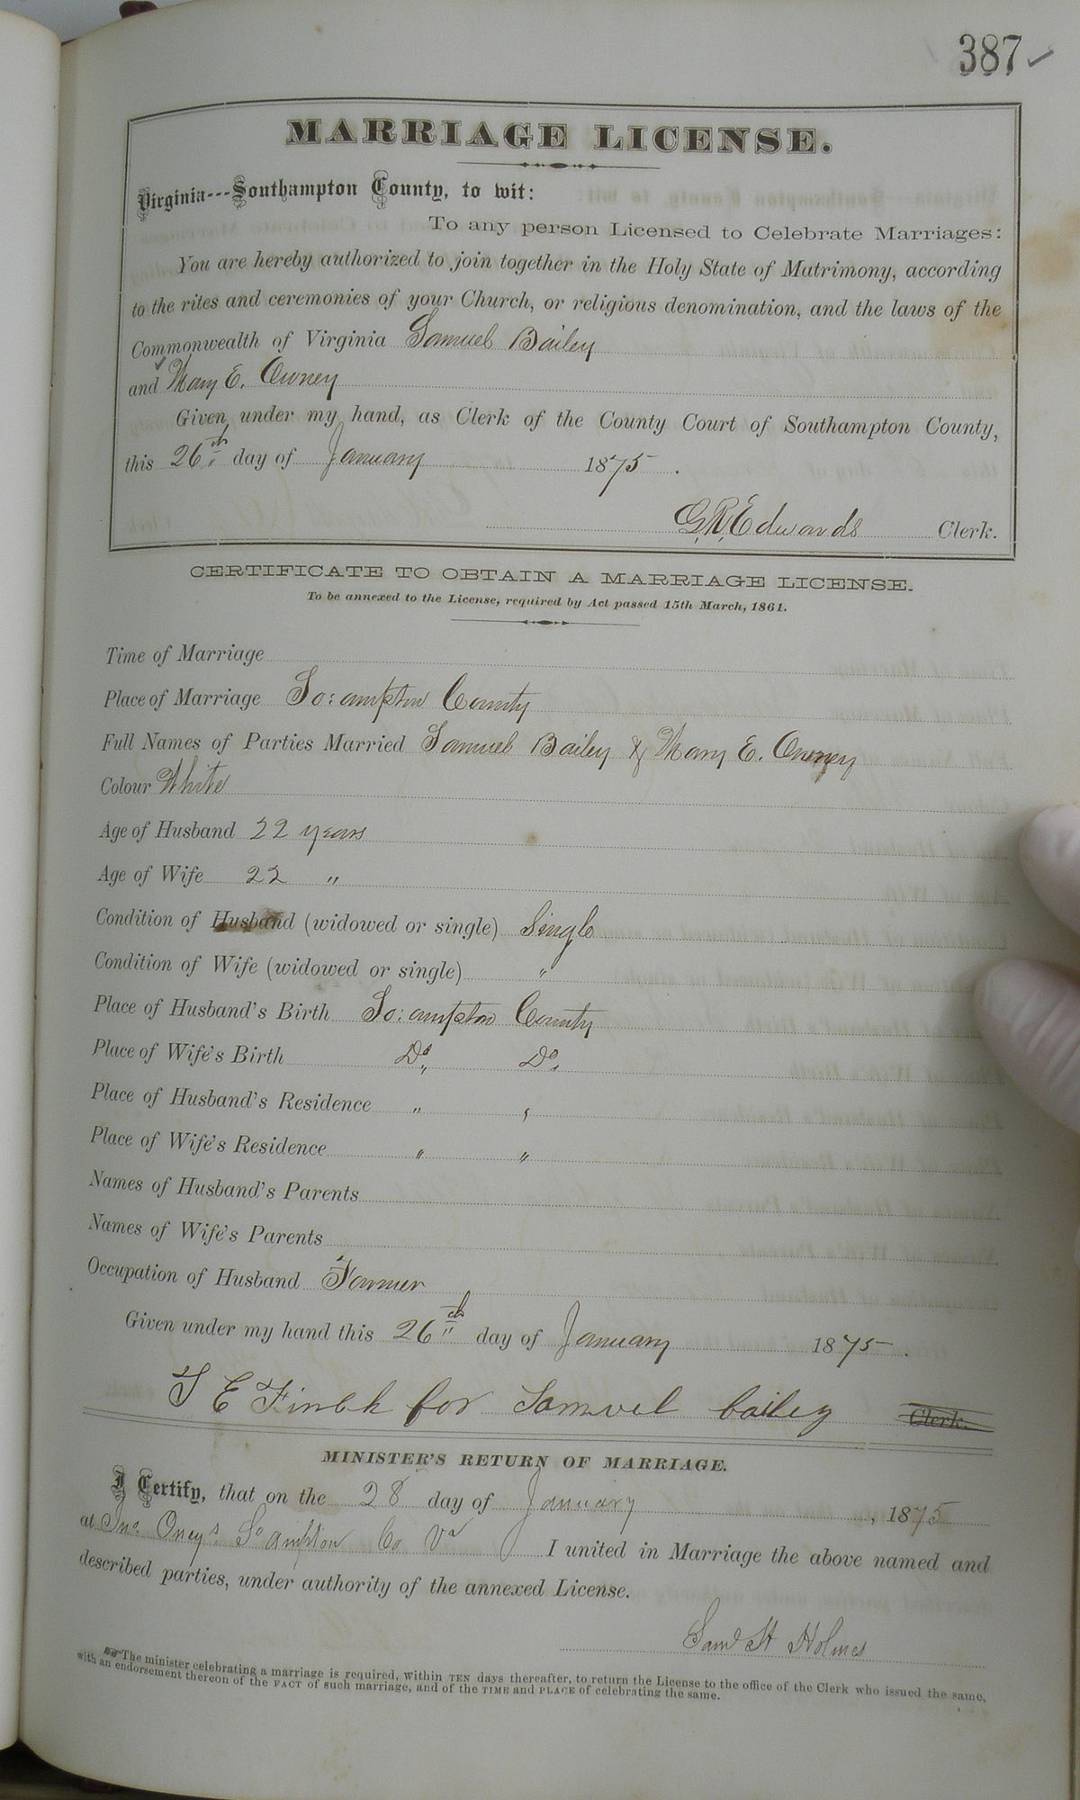 387
MARRIAGE LICENSE.
Virginia---Southampton County, to wit:
To any person Licensed to Celebrate Marriages:
You are hereby authorized to join together in the Holy State of Matrimony, according
to the rites and ceremonies of your Church, or religious denomination, and the laws of the
Commonwealth of Virginia Samuel Bailey
and Mary E. Owney
Given under my hand, as Clerk of the County Court of Southampton County,
this 26th day of January 1875.
G.R. Edwards Clerk.
CERTIFICATE TO OBTAIN A MARRIAGE LICENSE.
To be annexed to the License, required by Act passed 15th March, 1861.
Time of Marriage
Place of Marriage So:ampton County
Full Names of Parties Married Samuel Bailey & Mary E.
Colour White
Age of Husband 22 years
Age of Wife 22 "
Condition of Husband (widowed or single) Single
Condition of Wife (widowed or single) "
Place of Husband's Birth So:ampton County
Place of Wife's Birth Do Do
Place of Husband's Residence " "
Place of Wife's Residence " "
Names of Husband's Parents
Names of Wife's Parents
Occupation of Husband Farmer
Given under my hand this 26th day of January 1875.
T E Finch for Samuel bailey Clerk.
MINISTER'S RETURN OF MARRIAGE.
I Certify, that on the 28 day of January, 1875
at Jno. Oney's So ampton Co Va I united in Marriage the above named and
described parties, under authority of the annexed License.
Saml H Holmes
The minister celebrating a marriage is required, within TEN days thereafter, to return the License to the office of the Clerk who issued the same,
with an endorsement thereon of the FACT of such marriage, and of the TIME and PLACE of celebrating the same.